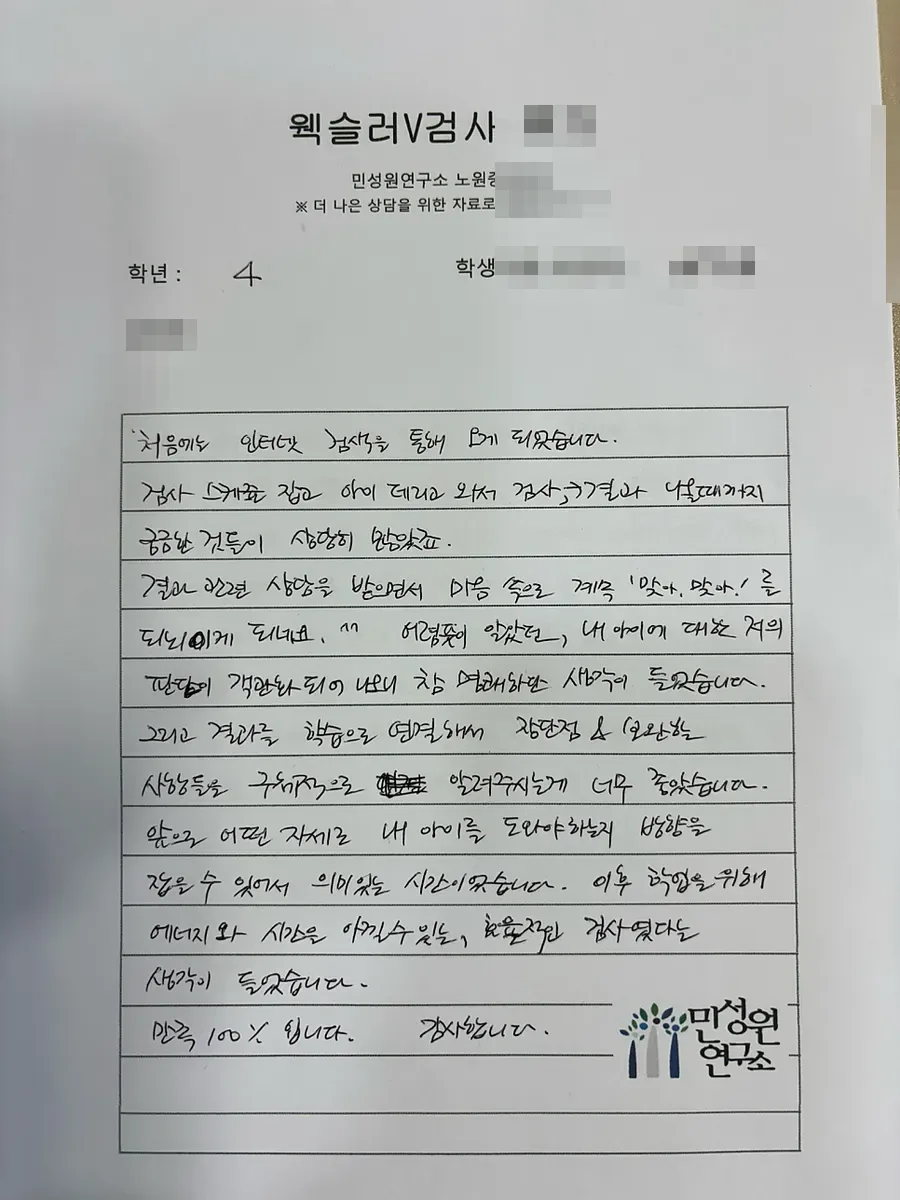 웩슬러V검사
민성원연구소 노원
※ 더 나은 상담을 위한 자료로
학년 : 4
학생
처음에는 인터넷 검색을 통해 오게 되었습니다.
검사 스케쥴 잡고 아이 데리고 와서 검사, 결과 나올때까지
궁금한 것들이 상당히 많았죠.
결과 관련 상담을 받으면서 마음 속으로 계속 '맞아, 맞아!'를
되뇌이게 되네요. ^^ 어렴풋이 알았던, 내 아이에 대한 저의
판단이 객관화 되어 나오니 참 명쾌하단 생각이 들었습니다.
그리고 결과를 학습으로 연결해서 장단점 & 보완할
사항들을 구체적으로 알려주시는게 너무 좋았습니다.
앞으로 어떤 자세로 내 아이를 도와야 하는지 방향을
잡을 수 있어서 의미있는 시간이었습니다. 이후 학업을 위해
에너지와 시간을 아낄수 있는, 효율적인 검사였다는
생각이 들었습니다.
만족 100% 입니다. 감사합니다.
민성원
연구소